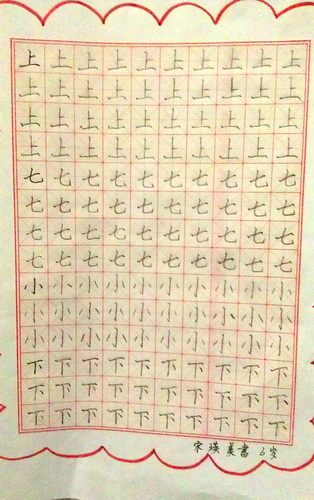 上上上上上上上上上上
上上上上上上上上上上
上上上上上上上上上上
上上上上上上上上上上
七七七七七七七七七七
七七七七七七七七七七
七七七七七七七七七七
七七七七七七七七七七
小小小小小小小小小小
小小小小小小小小小小
小小小小小小小小小小
下下下下下下下下下下
下下下下下下下下下下
下下下下下下下下下下
宋瑛美書 6岁